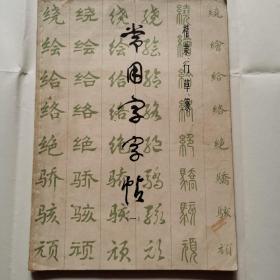 常用字字帖
楷隶行草篆
绕绕绕绕繞繞
绘绘绘绘繪繪
给给给给給給
络络络络絡絡
绝绝绝绝絕絕
骄骄骄骄驕驕
骇骇骇骇駭駭
顽顽顽顽頑頑